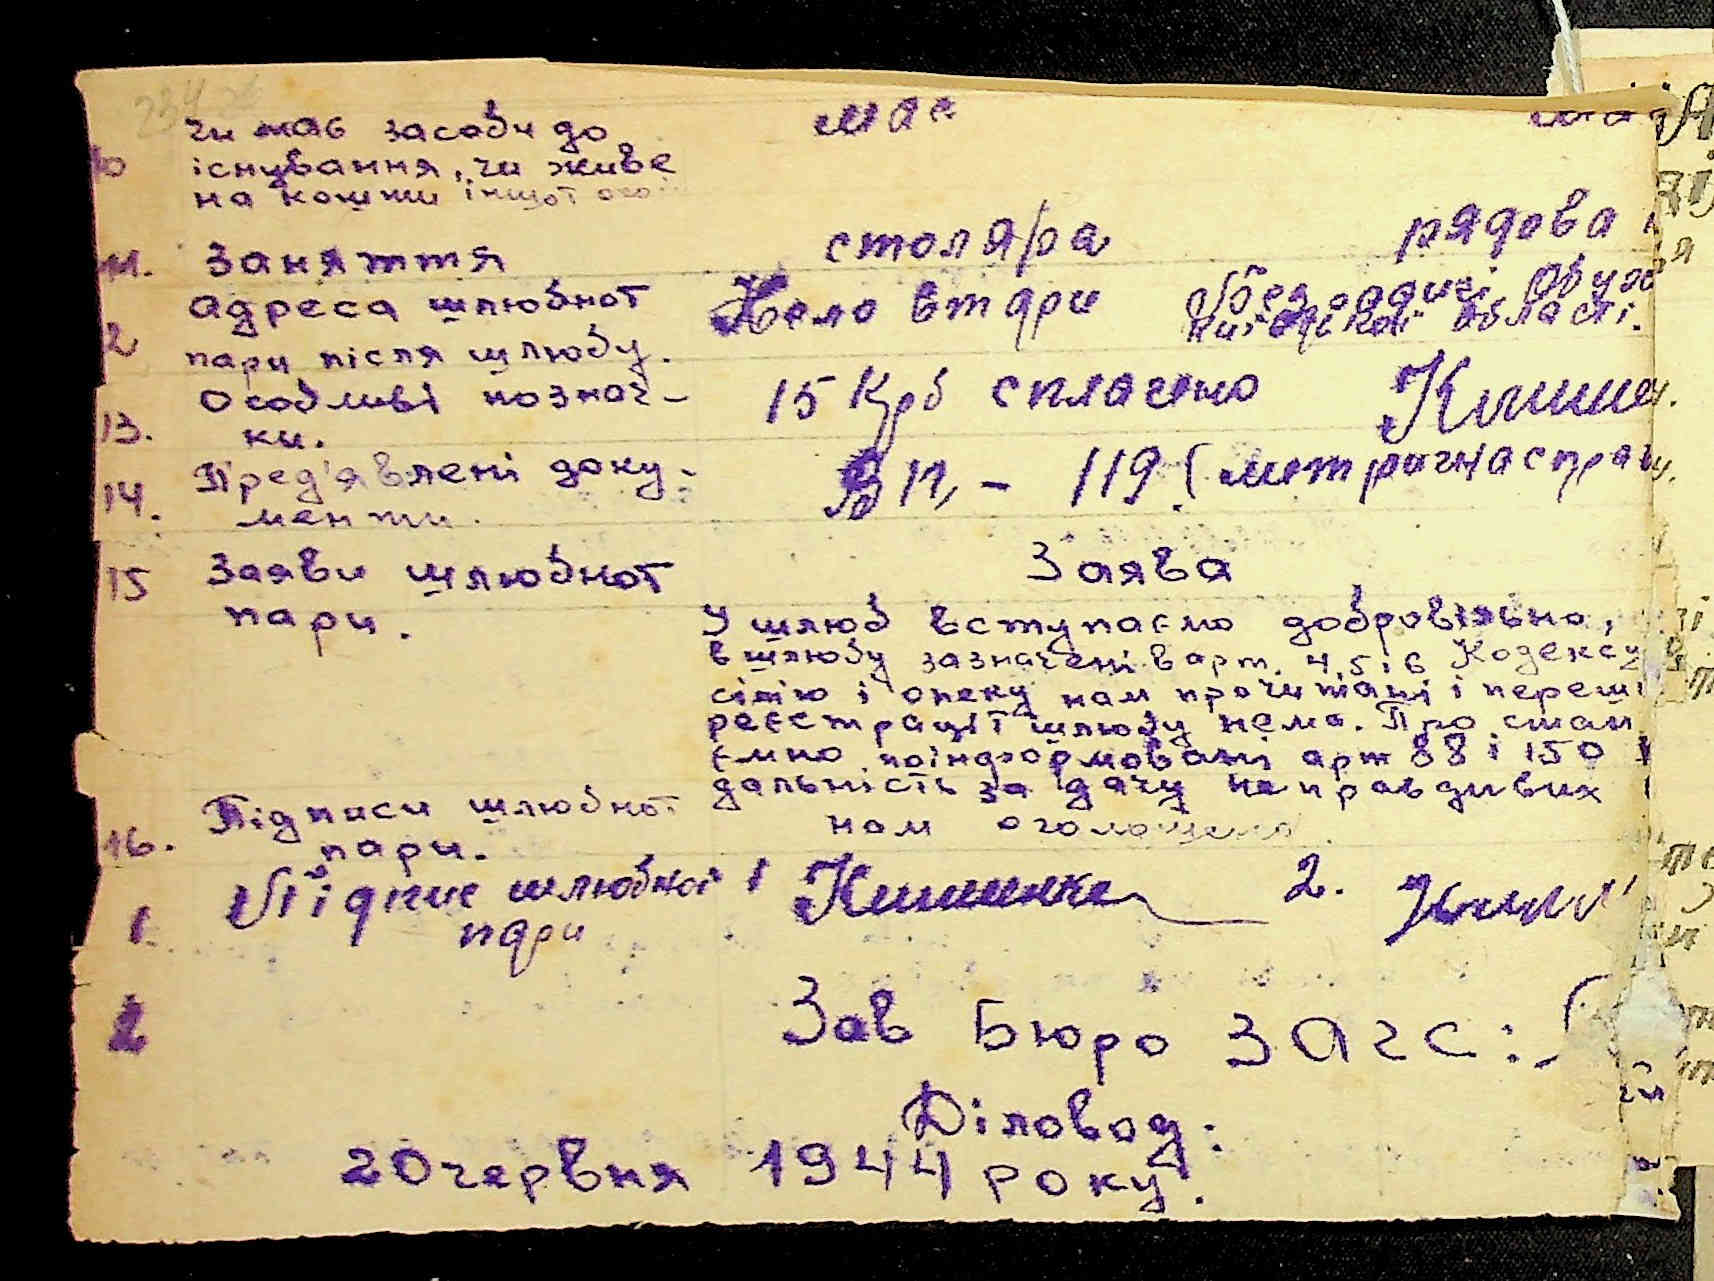 10 Чи має засоби до має
існування, чи живе
на кошти іншої
11. Заняття столяра рядова
2 Адреса шлюбної Село
пари після шлюбу. області.
13. Особливі познач- 15 крб сплачено
ки.
14. Пред'явлені доку- 119 (метрична справ
менти.
15 Заяви шлюбної Заява
пари.
У шлюб вступаємо добровільно,
в шлюбу зазначені в арт. 4, 5 і 6 Кодексу
сімю і опеку нам прочитані і переш
реєстрації шлюбу нема. Про стан
ємно поінформовані арт 88 і 150
дальність за дачу неправдивих
нам оголошено.
16. Підписи шлюбної
пари.
1 Підпис шлюбної 1 2.
пари
2 Зав Бюро ЗАГС:
Діловод:
20 червня 1944 року.